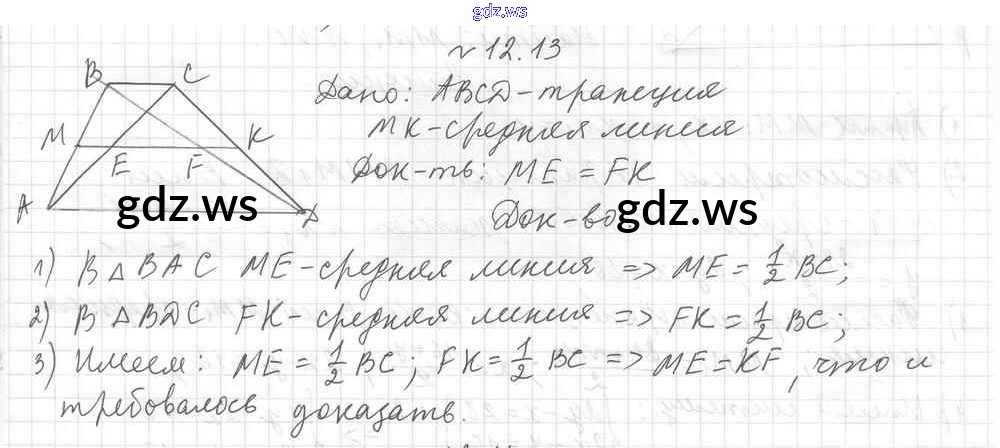 gdz.ws
№ 12.13
B C
Дано: ABCD-трапеция
MK-средняя линия
M E F K
Док-ть: ME = FK
A D
gdz.ws gdz.ws
Док-во
1) В △ BAC ME-средняя линия => ME = 1/2 BC;
2) В △ BDC FK- средняя линия => FK = 1/2 BC;
3) Имеем: ME = 1/2 BC; FK = 1/2 BC => ME = KF, что и
требовалось доказать.